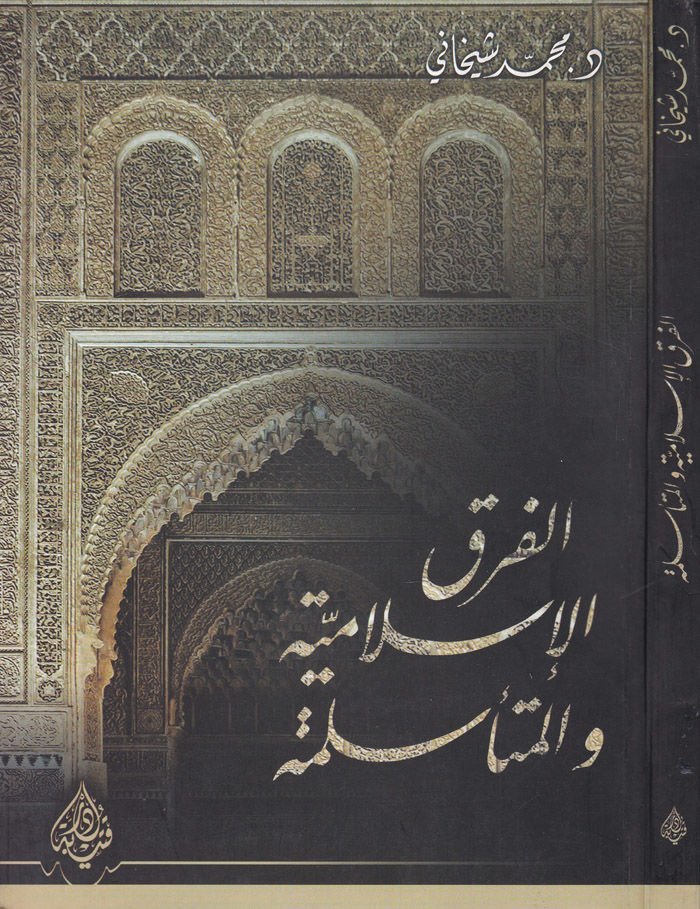 د. محمّد شيخاني
الفرق
الإسلاميّة
والمتأسلمة
دار قتيبة
د. محمّد شيخاني
الفرق الإسلاميّة والمتأسلمة
دار قتيبة